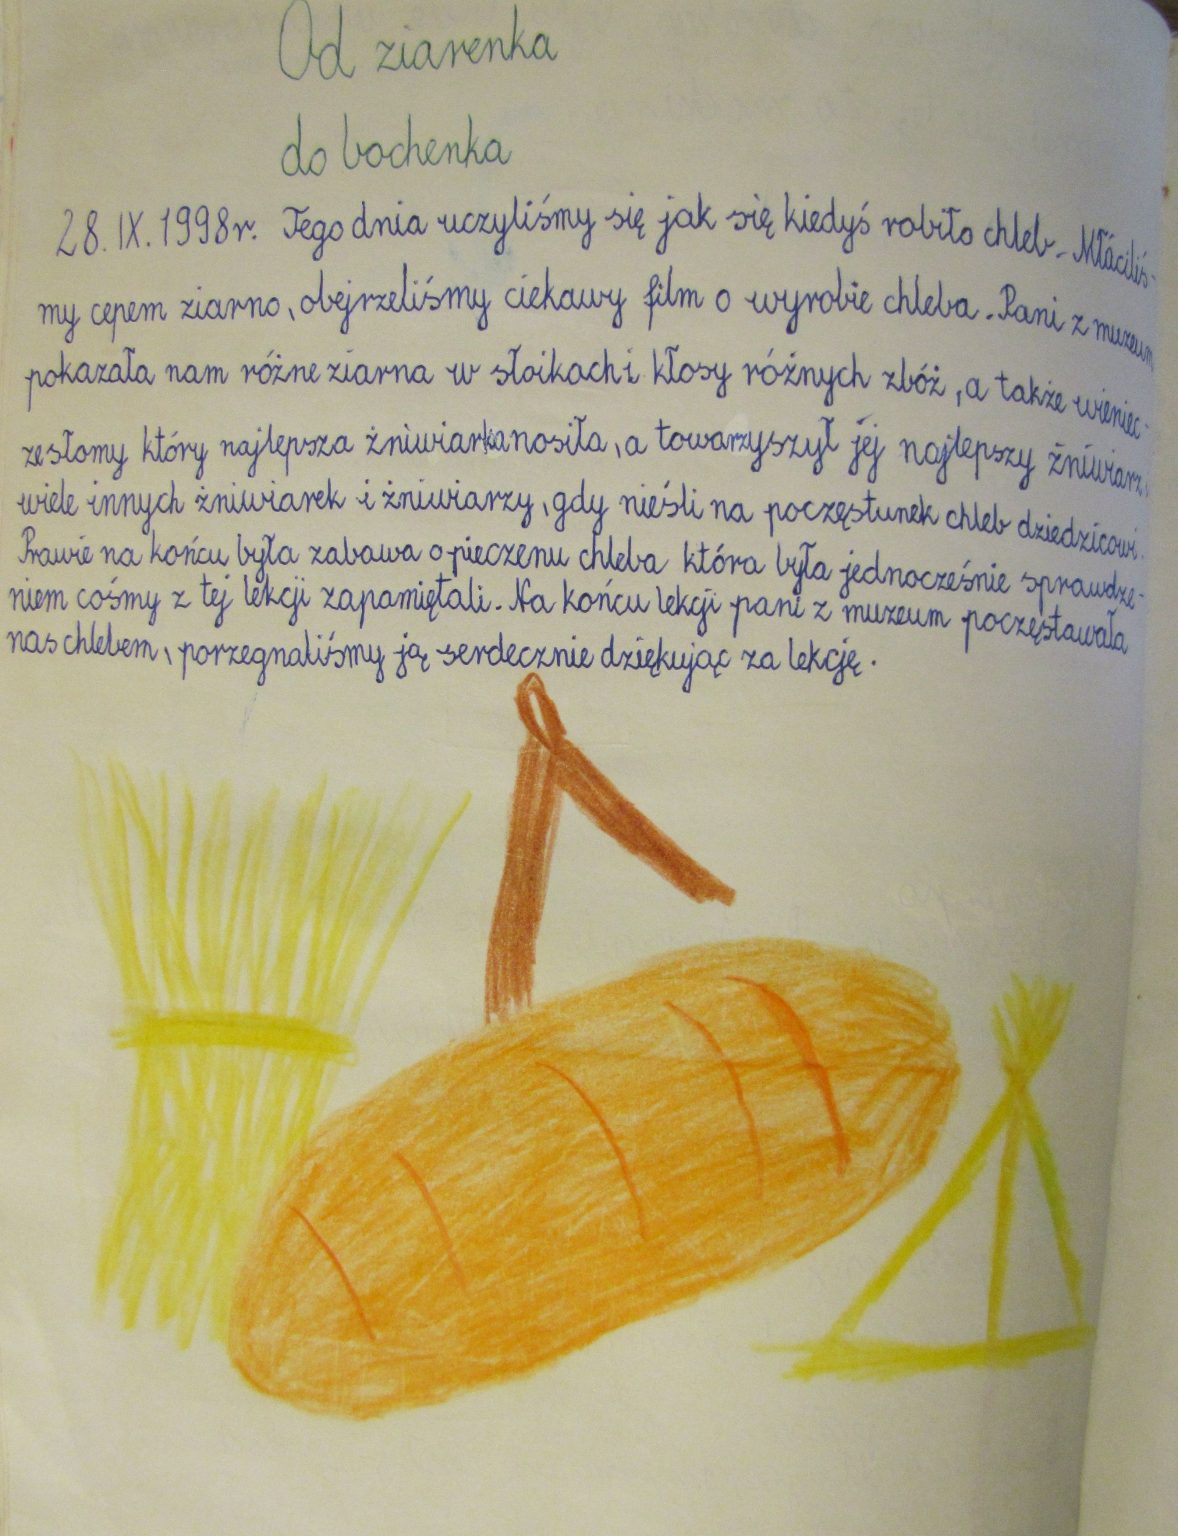 Od ziarenka
do bochenka
28. IX. 1998r. Tego dnia uczyliśmy się jak się kiedyś robiło chleb. Młáciliś-
my cepem ziarno, obejrzeliśmy ciekawy film o wyrobie chleba. Pani z muzeum
pokazała nam różne ziarna w słoikach i kłosy różnych zbóż, a także wieniec
ze słomy który najlepsza żniwiarka nosiła, a towarzyszył jej najlepszy żniwiarz,
wiele innych żniwiarek i żniwiarzy, gdy nieśli na poczęstunek chleb dziedzicowi.
Prawie na końcu była zabawa o pieczenu chleba która była jednocześnie sprawdze-
niem cośmy z tej lekcji zapamiętali. Na końcu lekcji pani z muzeum poczęstawała
nas chlebem, porzegnaliśmy ją serdecznie dziękując za lekcję.